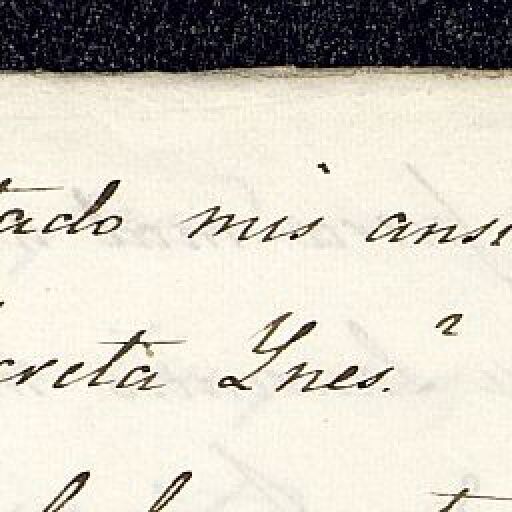 tado mis ansi
creta Ynes.?